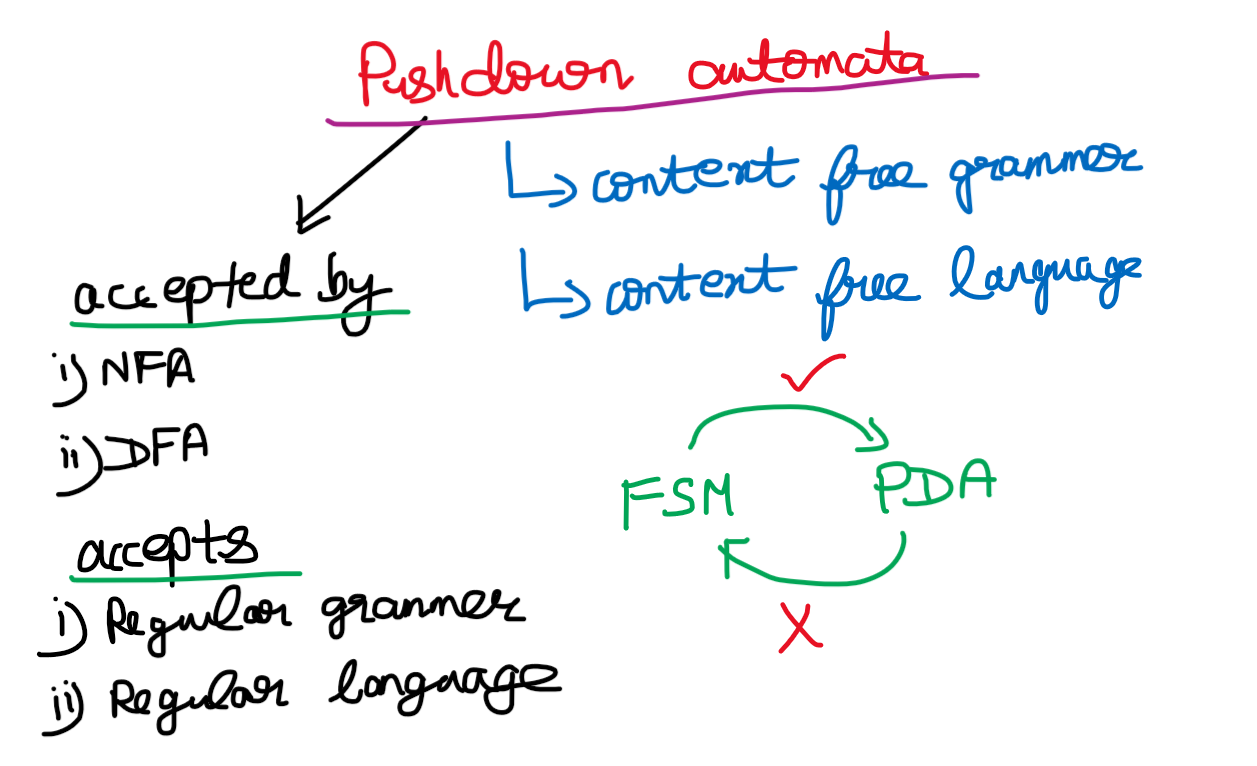 Pushdown automata
content free grammer
content free language
accepted by
i) NFA
ii) DFA
accepts
i) Regular grammer
ii) Regular language
FSM PDA